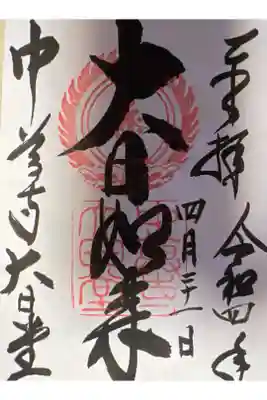 奉拝 令和四年
四月二十一日
大日如来
中尊寺大日堂